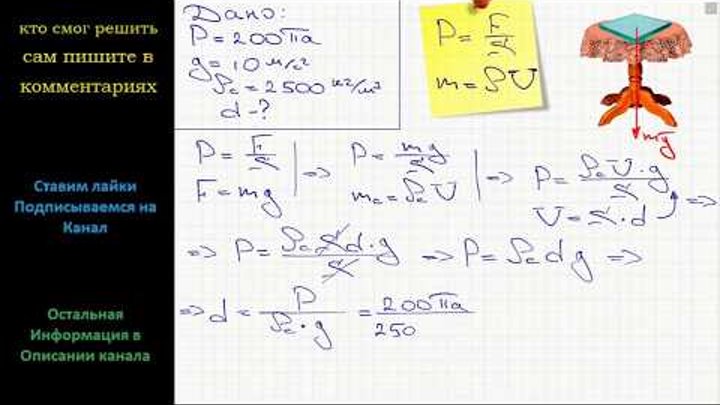 кто смог решить
сам пишите в
комментариях
Ставим лайки
Подписываемся на
Канал
Остальная
Информация в
Описании канала
Дано:
P = 200 Па
g = 10 м/с²
ρc = 2500 кг/м³
d - ?
P = F/S
m = ρV
mg
P = F/S
F = mg
=> P = mg/S
mc = ρcV
=> P = ρcV·g/S
V = S·d =>
=> P = ρcSd·g/S => P = ρc d g =>
=> d = P/ρc·g = 200 Па/250